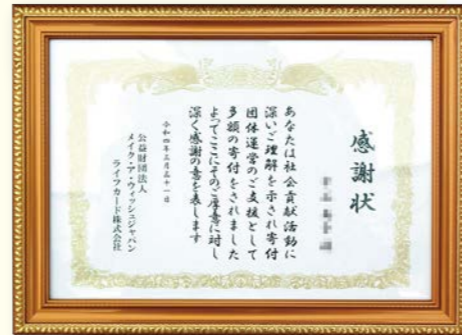 感謝状
あなたは社会貢献活動に
深いご理解を示され寄付
団体運営のご支援として
多額の寄付をされました
よってここにそのご厚意に対し
深く感謝の意を表します
令和四年三月三十一日
公益財団法人
メイク・ア・ウィッシュジャパン
ライフカード株式会社